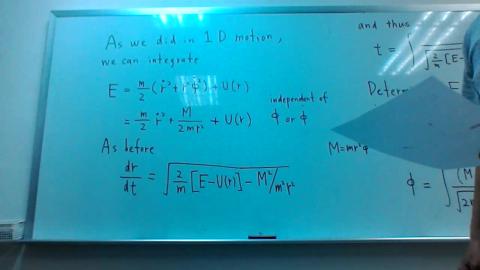 As we did in 1 D motion,
we can integrate
E = m/2 (ṙ² + r²φ̇²) + U(r)
= m/2 ṙ² + M/2mr² + U(r)
independent of
φ or φ̇
As before
dr/dt = √(2/m [E-U(r)] - M²/m²r²)
and thus
t = ∫
√(2/m [E-
M = mr²φ
φ = ∫ (M